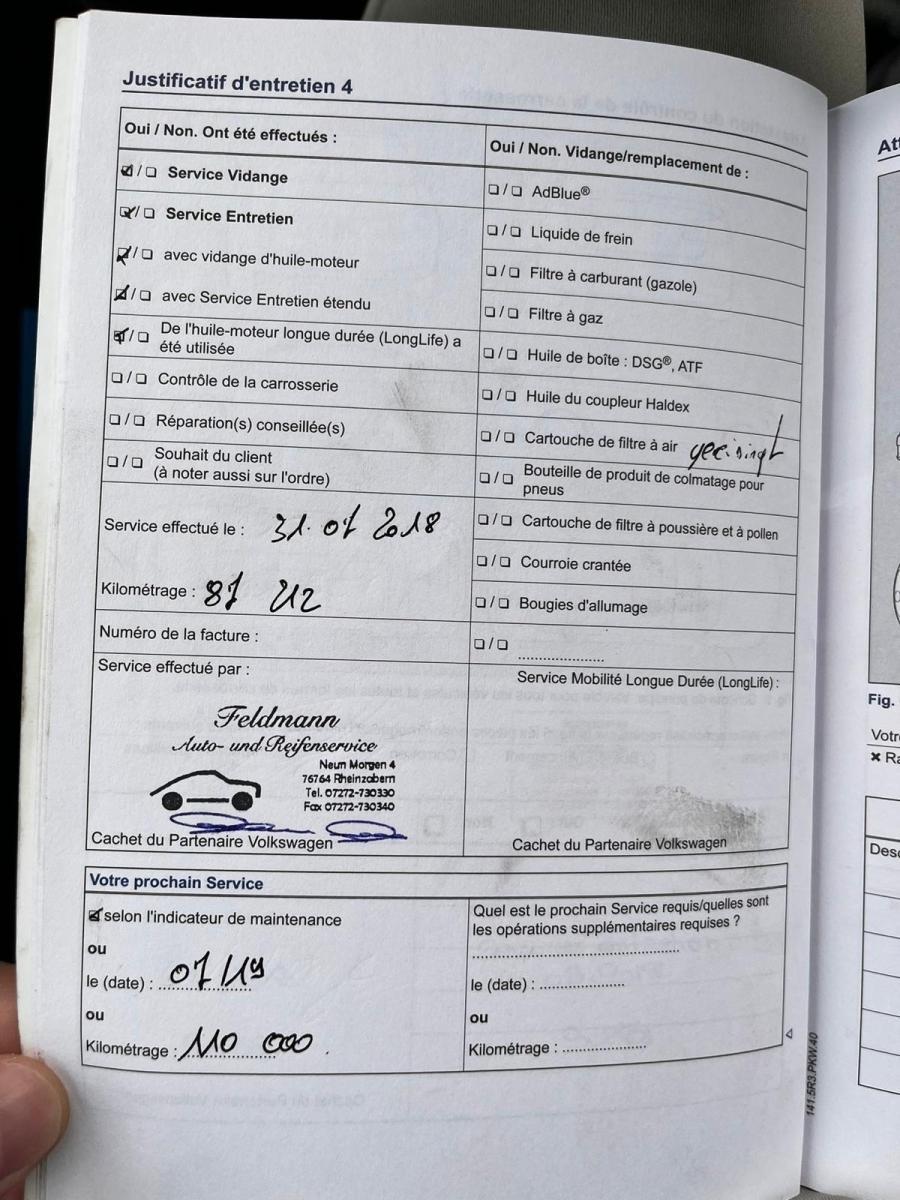 Justificatif d'entretien 4
Oui / Non. Ont été effectués :
☑/☐ Service Vidange
☑/☐ Service Entretien
☑/☐ avec vidange d'huile-moteur
☑/☐ avec Service Entretien étendu
☑/☐ De l'huile-moteur longue durée (LongLife) a
été utilisée
☐/☐ Contrôle de la carrosserie
☐/☐ Réparation(s) conseillée(s)
☐/☐ Souhait du client
(à noter aussi sur l'ordre)
Service effectué le : 31. 07 2018
Kilométrage :
Numéro de la facture :
Service effectué par :
Feldmann
Auto- und Reifenservice
Neun Morgen 4
76764 Rheinzabern
Tel. 07272-730330
Fax 07272-730340
Cachet du Partenaire Volkswagen
Oui / Non. Vidange/remplacement de :
☐/☐ AdBlue®
☐/☐ Liquide de frein
☐/☐ Filtre à carburant (gazole)
☐/☐ Filtre à gaz
☐/☐ Huile de boîte : DSG®, ATF
☐/☐ Huile du coupleur Haldex
☐/☐ Cartouche de filtre à air
☐/☐ Bouteille de produit de colmatage pour
pneus
☐/☐ Cartouche de filtre à poussière et à pollen
☐/☐ Courroie crantée
☐/☐ Bougies d'allumage
☐/☐ ......................
Service Mobilité Longue Durée (LongLife) :
Cachet du Partenaire Volkswagen
Votre prochain Service
☑ selon l'indicateur de maintenance
ou
le (date) :
ou
Kilométrage : 110 000
Quel est le prochain Service requis/quelles sont
les opérations supplémentaires requises ?
le (date) : ......................
ou
Kilométrage : ......................
141.5R3.PKW.40
Att
Fig.
Votr
Desc